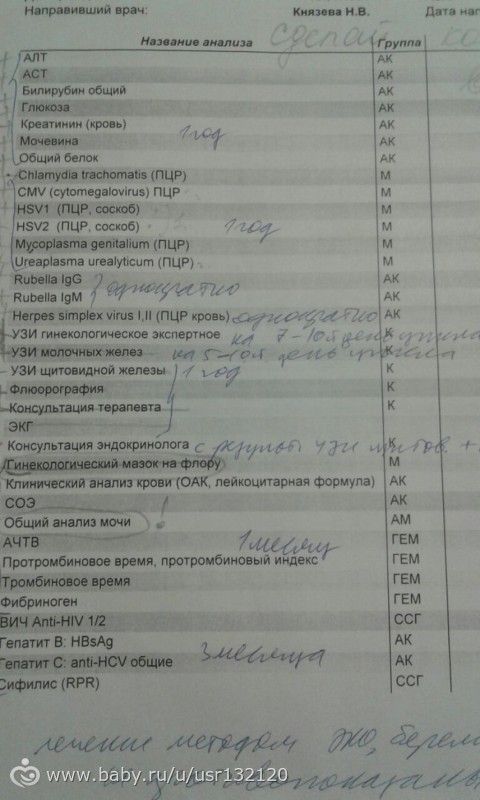 Направивший врач: Князева Н.В. Дата наг
Название анализа сделай Группа
АЛТ АК
АСТ АК
Билирубин общий АК
Глюкоза АК
Креатинин (кровь) АК
Мочевина 1 год АК
Общий белок АК
Chlamydia trachomatis (ПЦР) М
CMV (cytomegalovirus) ПЦР М
HSV1 (ПЦР, соскоб) М
HSV2 (ПЦР, соскоб) 1 год М
Mycoplasma genitalium (ПЦР) М
Ureaplasma urealyticum (ПЦР) М
Rubella IgG однократно АК
Rubella IgM АК
Herpes simplex virus I,II (ПЦР кровь) однократно АК
УЗИ гинекологическое экспертное на 7-10й день цикла К
УЗИ молочных желез на 5-10й день цикла К
УЗИ щитовидной железы 1 год К
Флюорография К
Консультация терапевта К
ЭКГ
Консультация эндокринолога с результ. узи щитов. + К
Гинекологический мазок на флору М
Клинический анализ крови (ОАК, лейкоцитарная формула) АК
СОЭ АК
Общий анализ мочи ! АМ
АЧТВ 1 месяц ГЕМ
Протромбиновое время, протромбиновый индекс ГЕМ
Тромбиновое время ГЕМ
Фибриноген ГЕМ
ВИЧ Anti-HIV 1/2 ССГ
Гепатит В: HBsAg АК
Гепатит С: anti-HCV общие 3 месяца АК
Сифилис (RPR) ССГ
лечение методом ЭКО, берем
www.baby.ru/u/usr132120